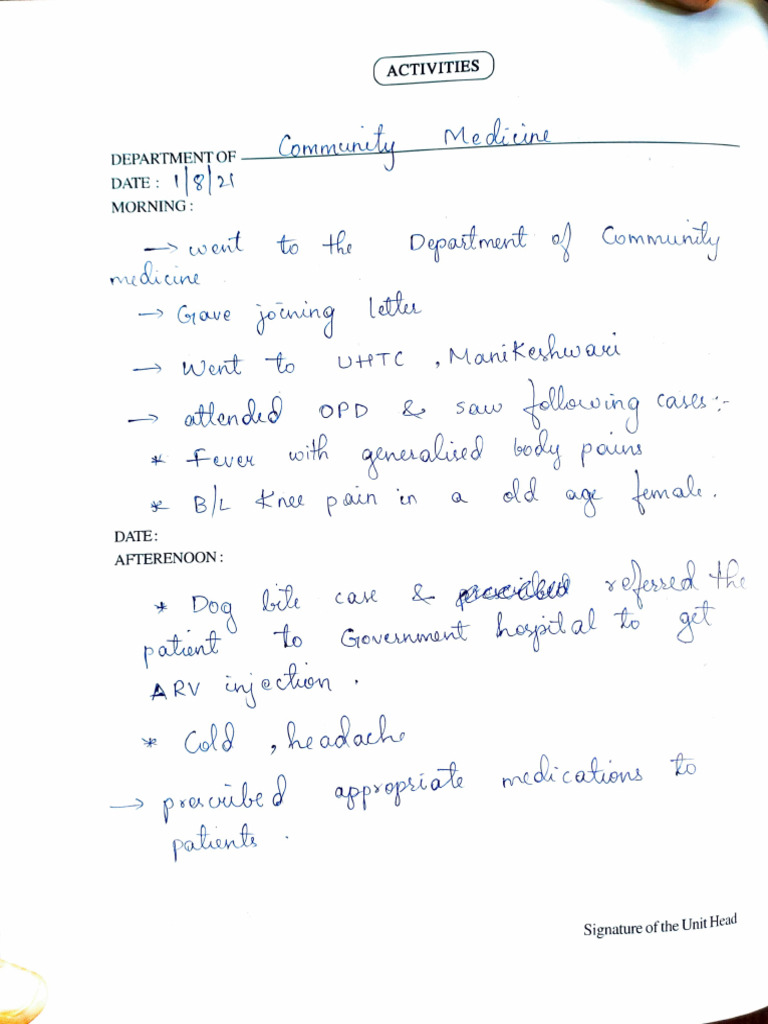 ACTIVITIES
DEPARTMENT OF Community Medicine
DATE : 1/8/21
MORNING :
→ went to the Department of Community
medicine
→ Gave joining letter
→ Went to UHTC , Manikeshwari
→ attended OPD & saw following cases :-
* Fever with generalised body pains
* B/L Knee pain in a old age female.
DATE:
AFTERENOON :
* Dog bite case & referred the
patient to Government hospital to get
ARV injection .
* Cold , headache
→ prescribed appropriate medications to
patients .
Signature of the Unit Head